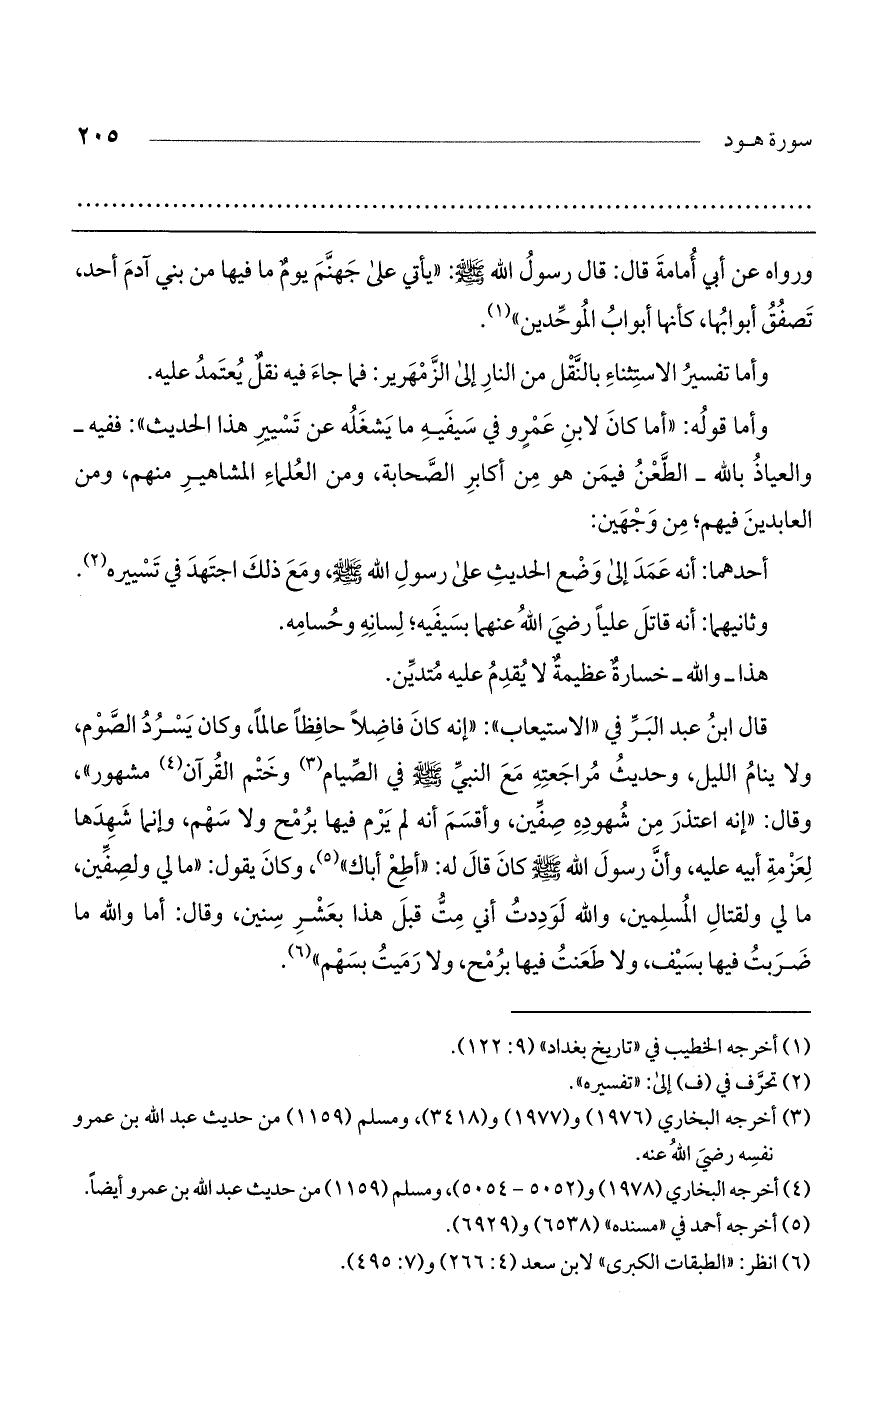 سورة هـود ٢٠٥
ورواه عن أبي أُمامةَ قال: قال رسولُ الله ﷺ: «يأتي علىٰ جَهنَّمَ يومٌ ما فيها من بني آدمَ أحد،
تَصفُقُ أبوابُها، كأنها أبوابُ المُوحِّدين»(١).
وأما تفسيرُ الاستِثناءِ بالنَّقْل من النارِ إلىٰ الزَّمْهَرير: فما جاءَ فيه نقلٌ يُعتَمدُ عليه.
وأما قولُه: «أما كانَ لابنِ عَمْرٍو في سَيفَيـهِ ما يَشغَلُه عن تَسْييرِ هذا الحديث»: ففيه ـ
والعياذُ بالله ـ الطَّعْنُ فيمَن هو مِن أكابرِ الصَّحابة، ومن العُلماءِ المشاهيـرِ منهم، ومن
العابدينَ فيهم؛ مِن وَجْهَين:
أحدهما: أنه عَمَدَ إلىٰ وَضْع الحديثِ علىٰ رسولِ الله ﷺ، ومَعَ ذلكَ اجتَهدَ في تَسْييره(٢).
وثانيهما: أنه قاتلَ علياً رضيَ اللهُ عنهما بسَيفَيه؛ لِسانِهِ وحُسامِه.
هذا ـ والله ـ خسارةٌ عظيمةٌ لا يُقدِمُ عليه مُتديِّن.
قال ابنُ عبد البَـرِّ في «الاستيعاب»: «إنه كانَ فاضِلاً حافِظاً عالماً، وكان يَسْـرُدُ الصَّوْم،
ولا ينامُ الليل، وحديثُ مُراجَعتِهِ مَعَ النبيِّ ﷺ في الصِّيام(٣) وخَتْم القُرآن(٤) مشهور»،
وقال: «إنه اعتذرَ مِن شُهودِهِ صِفِّين، وأقسَمَ أنه لم يَرْمِ فيها برُمْح ولا سَهْم، وإنما شَهِدَها
لِعَزْمةِ أبيه عليه، وأنَّ رسولَ الله ﷺ كانَ قالَ له: «أطِعْ أباك»(٥)، وكانَ يقول: «ما لي ولصِفِّين،
ما لي ولقتالِ المُسلِمين، والله لَوَدِدتُ أني مِتُّ قبلَ هذا بعَشْـرِ سِنين، وقال: أما والله ما
ضَـرَبتُ فيها بسَيْف، ولا طَعَنتُ فيها برُمْح، ولا رَمَيتُ بسَهْم»(٦).
(١) أخرجه الخطيب في «تاريخ بغداد» (٩: ١٢٢).
(٢) تحرَّف في (ف) إلىٰ: «تفسيره».
(٣) أخرجه البخاري (١٩٧٦) و(١٩٧٧) و(٣٤١٨)، ومسلم (١١٥٩) من حديث عبد الله بن عمرو
نفسِه رضيَ اللهُ عنه.
(٤) أخرجه البخاري (١٩٧٨) و(٥٠٥٢ - ٥٠٥٤)، ومسلم (١١٥٩) من حديث عبد الله بن عمرو أيضاً.
(٥) أخرجه أحمد في «مسنده» (٦٥٣٨) و(٦٩٢٩).
(٦) انظر: «الطبقات الكبرى» لابن سعد (٤: ٢٦٦) و(٧: ٤٩٥).